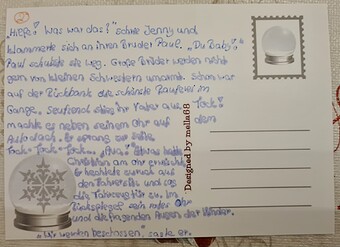 2
„Hilfe! Was war das?" schrie Jenny und
klammerte sich an ihren Bruder Paul. „Du Baby!"
Paul schubste sie weg. Große Brüder werden nicht
gern von kleinen Schwestern umarmt. Schon war
auf der Rückbank die schönste Rauferei im
Gange. Seufzend stieg ihr Vater aus. Tock!
machte es neben seinem Ohr auf dem
Autodach. Er sprang zur Seite.
Tock-Tock-Tock... „Aua!" Etwas hatte
Christian am Ohr erwischt.
Er hechtete zurück auf
den Fahrersitz und zog
die Fahrertür zu. Im
Rückspiegel sein rotes Ohr
und die fragenden Augen der Kinder.
„Wir werden beschossen", sagte er.
Designed by mella68